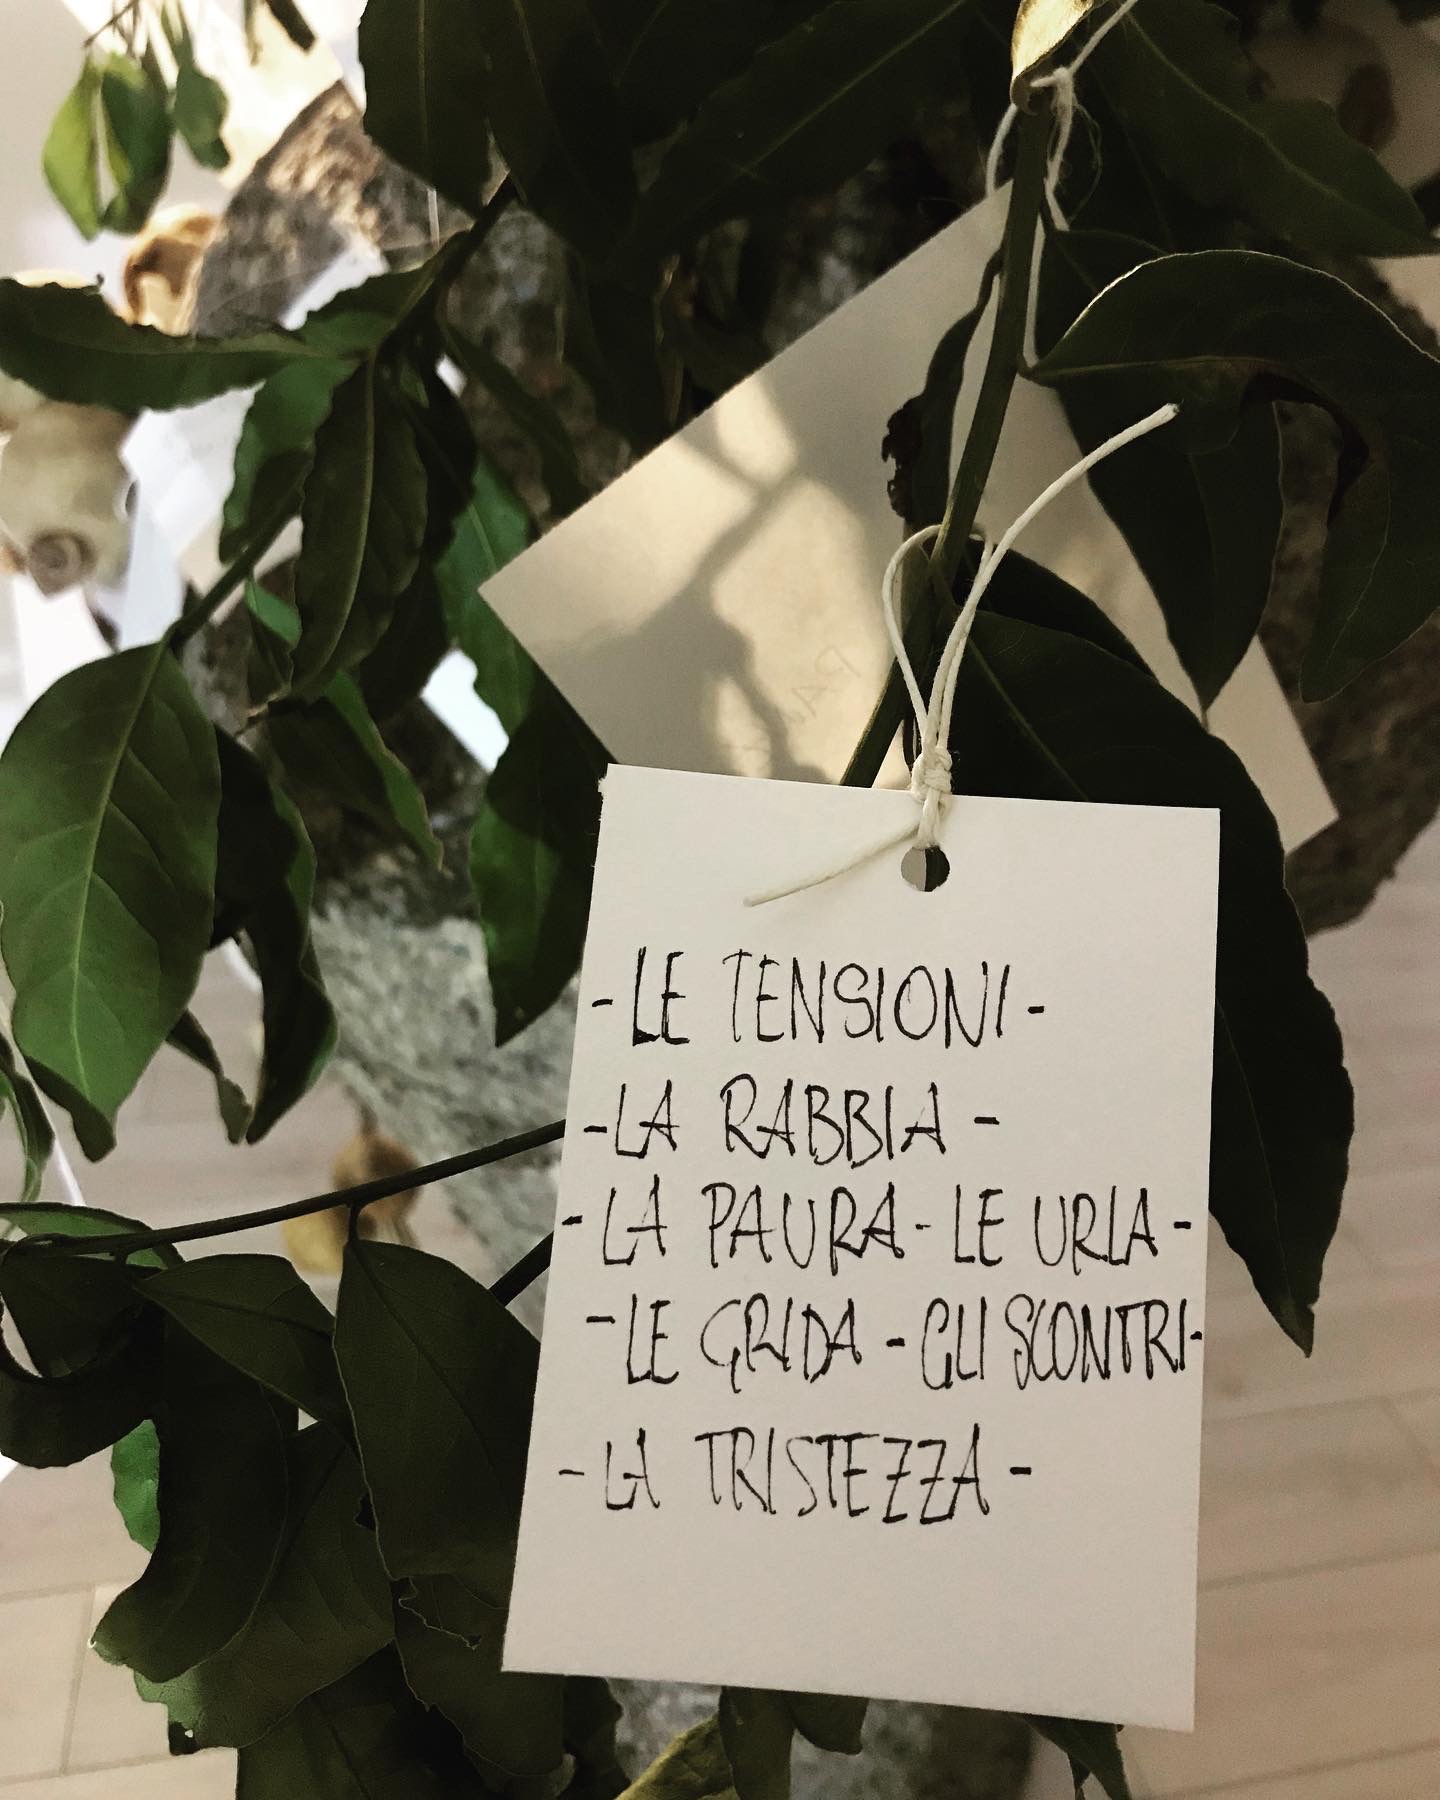 - LE TENSIONI -
- LA RABBIA -
- LA PAURA - LE URLA -
- LE GRIDA - GLI SCONTRI -
- LA TRISTEZZA -